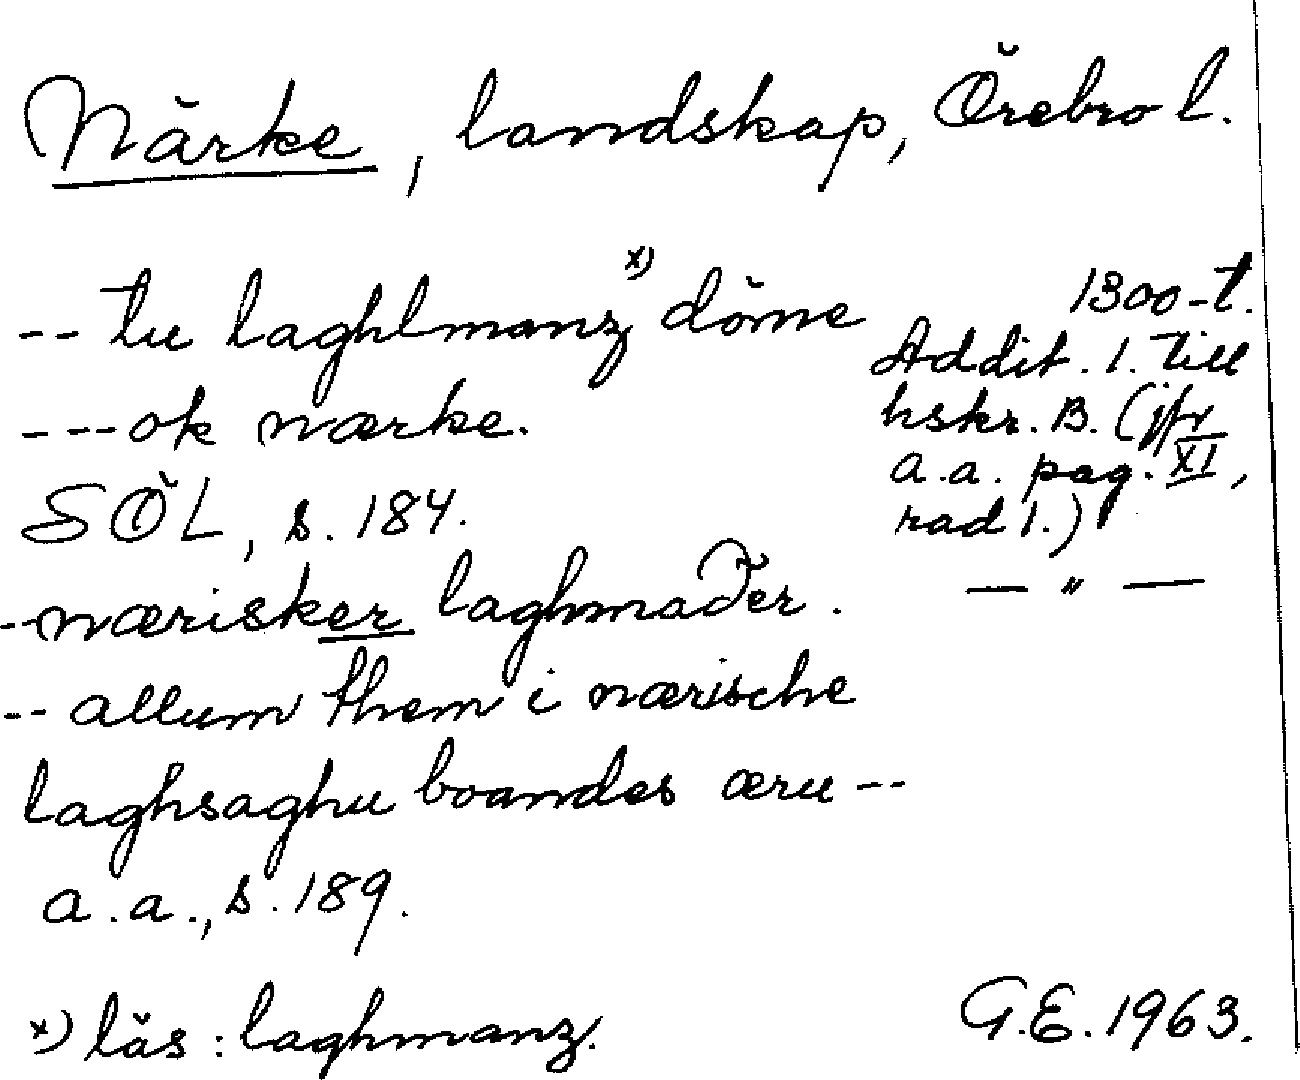 Närke, landskap, Örebro l.
-- tu laghlmanz x) döme
1300-t.
Addit. 1. till
--- ok nærke.
hskr. B. (jfr
a.a. pag. XI,
SÖL, s. 184.
rad 1.)
- nærisker laghmaðer.
— " —
-- allum them i nærische
laghsaghu boandes æru --
a.a., s. 189.
x) läs: laghmanz.
G.E. 1963.